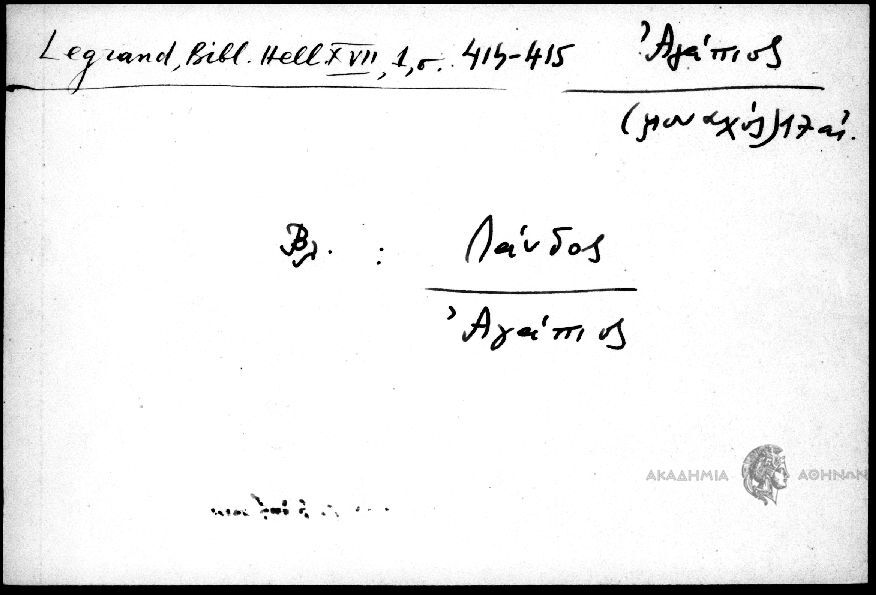 Legrand, Bibl. Hell. XVII, 1, σ. 414-415
Ἀγάπιος
(μοναχός) 17 αἰ.
Βλ. : Λάνδος
Ἀγάπιος
ΑΚΑΔΗΜΙΑ ΑΘΗΝΩΝ